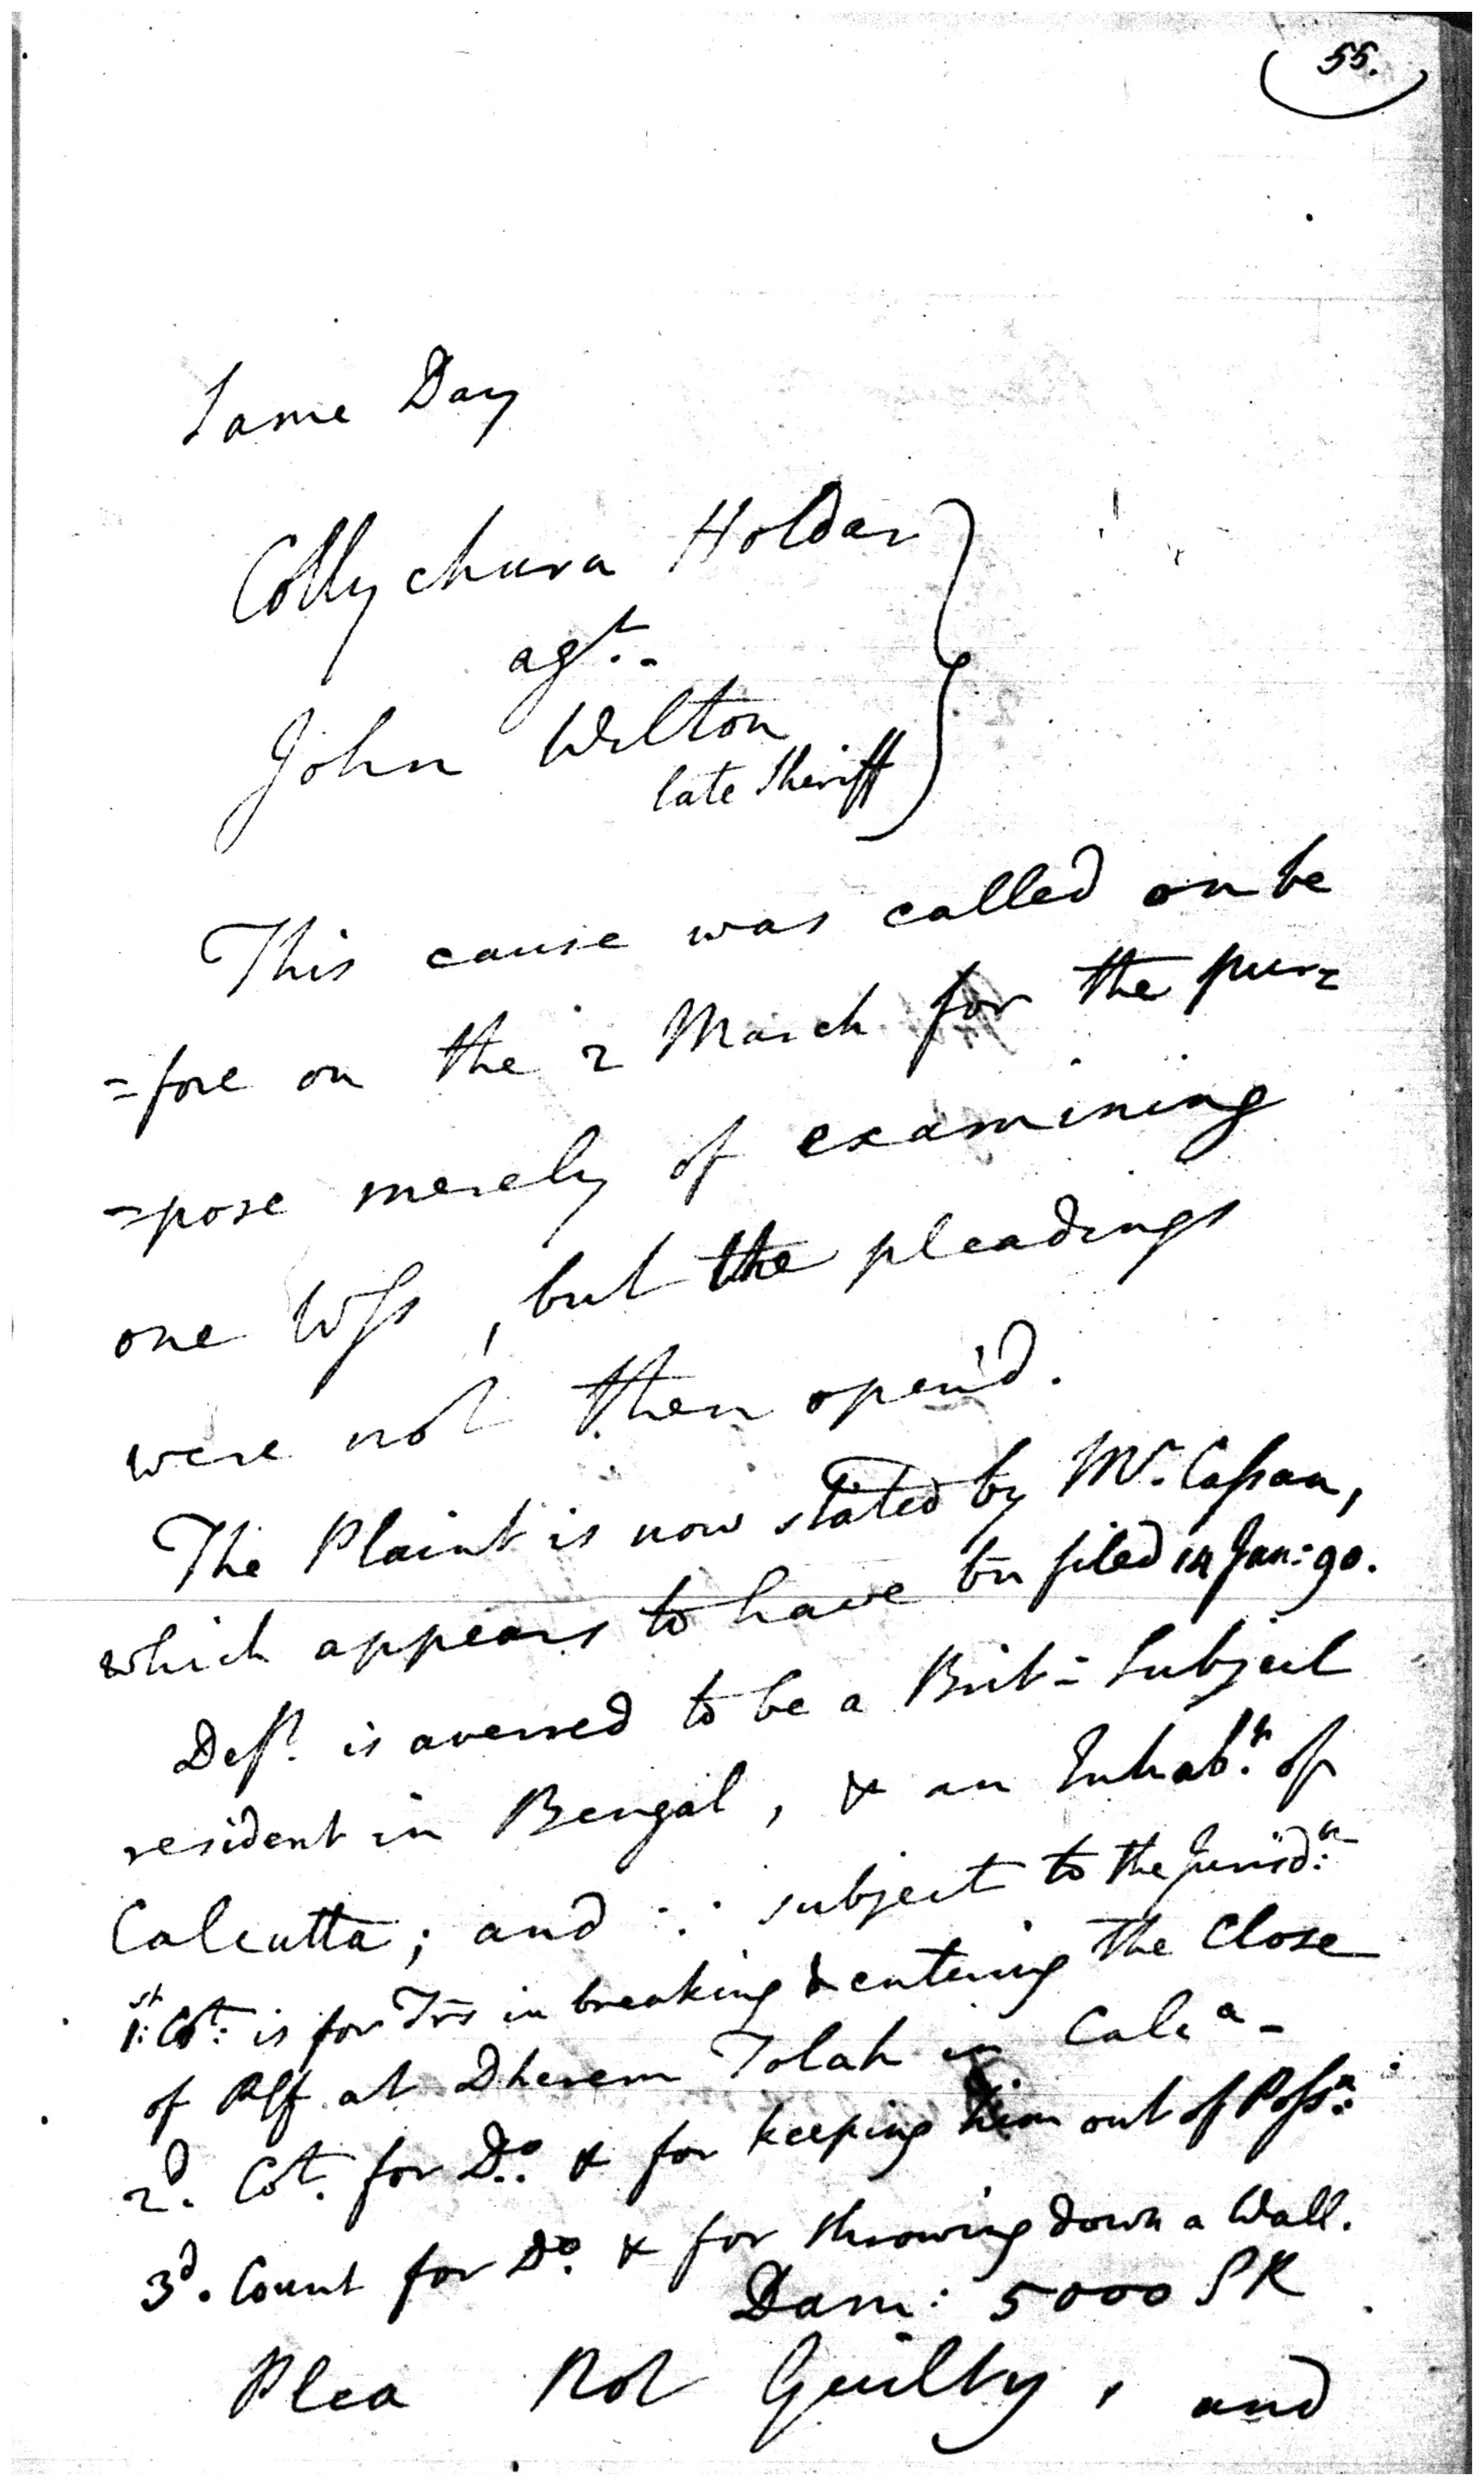 55.
Same Day
Collychurn Holdar
agt.
John Wilton
late Sheriff
This cause was called on be
=fore on the 2 March for the pur=
=pose merely of examining
one Wss, but the pleadings
were not then open'd.
The Plaint is now stated by Mr. Cassan,
which appears to have bn filed 14 Jan: 90.
Deft. is averred to be a Brit= Subject
resident in Bengal, & an Inhabt. of
Calcutta; and ∴ subject to the Jurisdn:
1st: Ct: is for Trs in breaking & entering the Close
of Plff at Dherem Tolah in Calca-
2d. Cot. for Do. & for keeping him out of Possn:
3d. Count for Do. & for throwing down a Wall.
Dam: 5000 SR
Plea Not Guilty, and